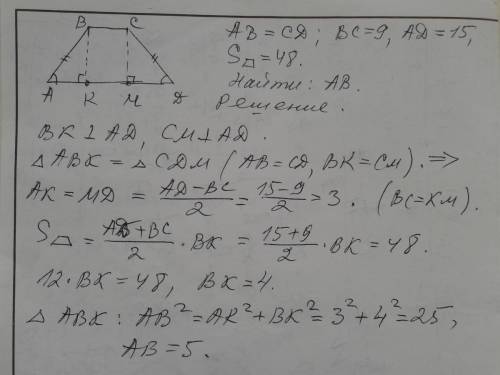 B C
A K M D
AB = CD ; BC = 9, AD = 15,
S⏢ = 48.
Найти: AB.
Решение.
BK ⊥ AD, CM ⊥ AD.
△ ABK = △ CDM (AB = CD, BK = CM). ⇒
AK = MD = (AD − BC)/2 = (15 − 9)/2 = 3. (BC = KM).
S⏢ = (AD + BC)/2 · BK = (15 + 9)/2 · BK = 48.
12 · BK = 48, BK = 4.
△ ABK : AB² = AK² + BK² = 3² + 4² = 25,
AB = 5.